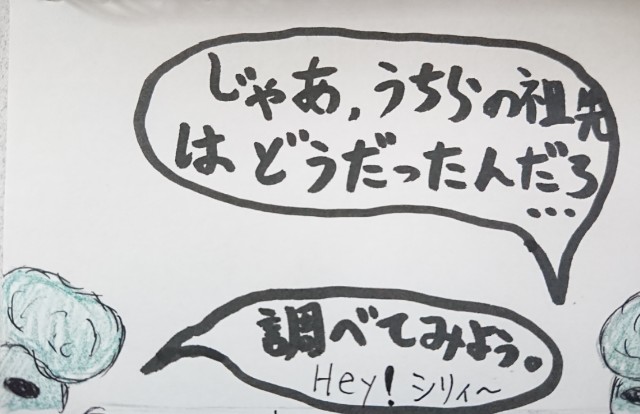 じゃあ,うちらの祖先
はどうだったんだろ
...
調べてみよう。
Hey!シリィ〜